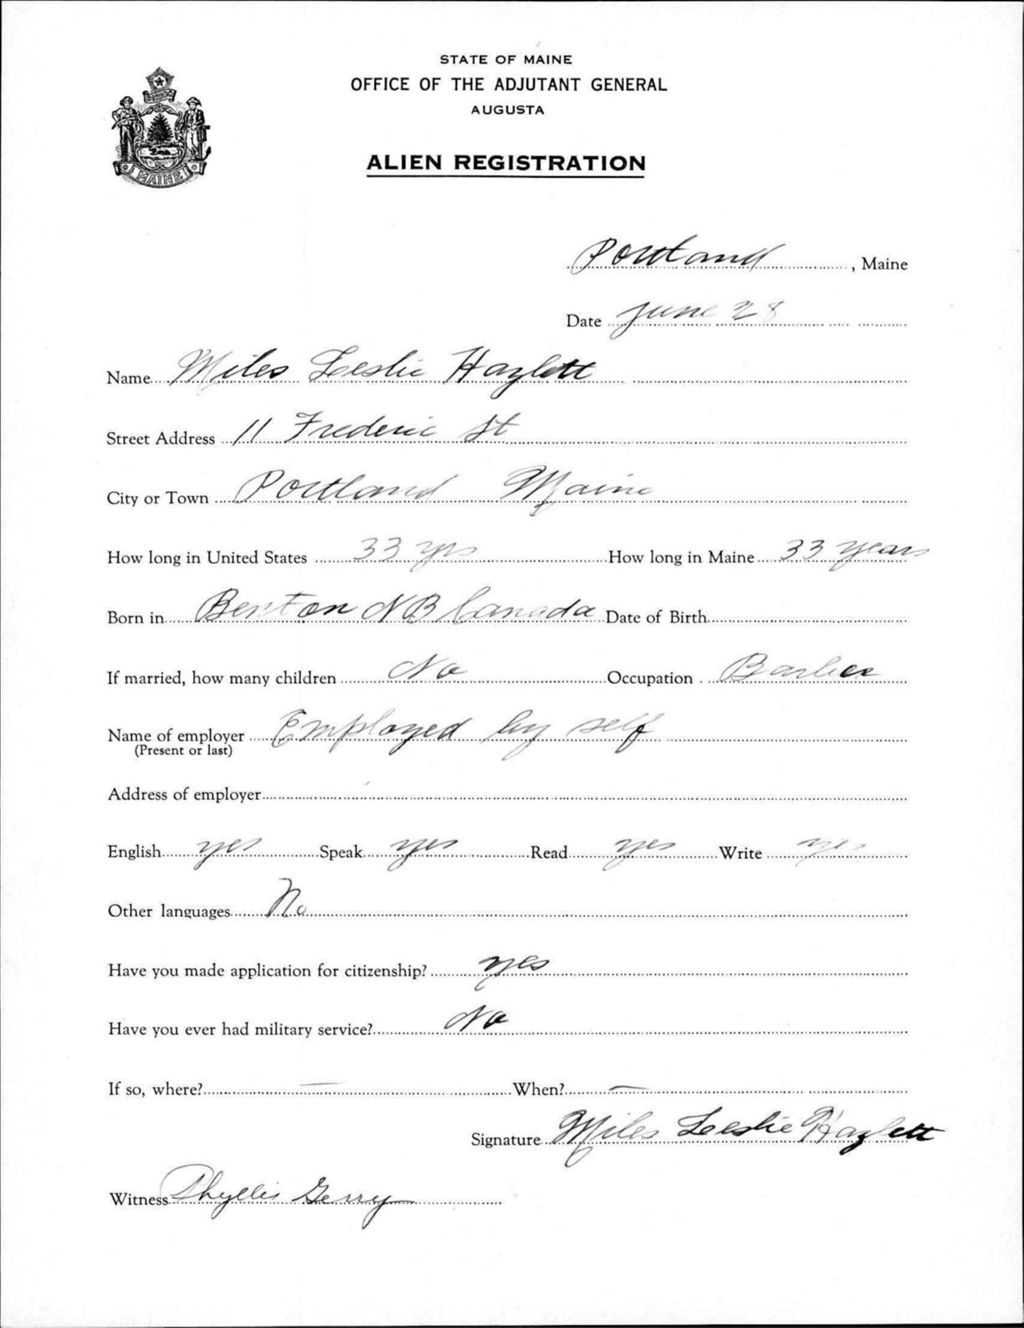 STATE OF MAINE
OFFICE OF THE ADJUTANT GENERAL
AUGUSTA
MAINE
ALIEN REGISTRATION
Portland, Maine
Date June 28
Name Miles Leslie Hazlett
Street Address 11 Frederic St
City or Town Portland Maine
How long in United States 33 yrs How long in Maine 33 years
Born in Benton NB Canada Date of Birth
If married, how many children No Occupation Barber
Name of employer Employed by self
(Present or last)
Address of employer
English yes Speak yes Read yes Write yes
Other languages No
Have you made application for citizenship? yes
Have you ever had military service? No
If so, where? — When? —
Signature Miles Leslie Hazlett
Witness Phyllis Gerry